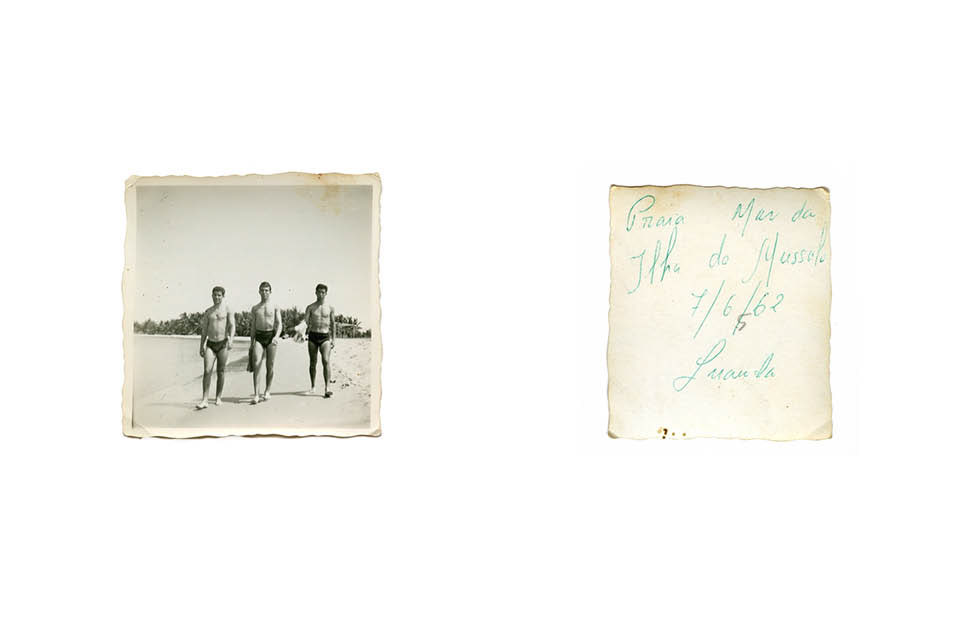 Praia Mar da
Ilha do Mussolo
7/6/62
5
Luanda